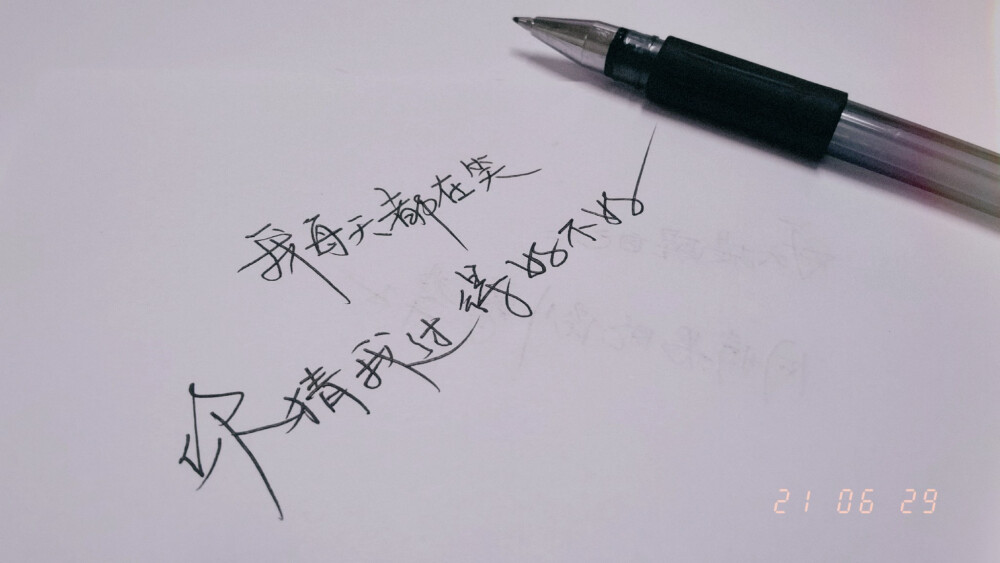 我每天都在笑
你猜我过得好不好
21 06 29